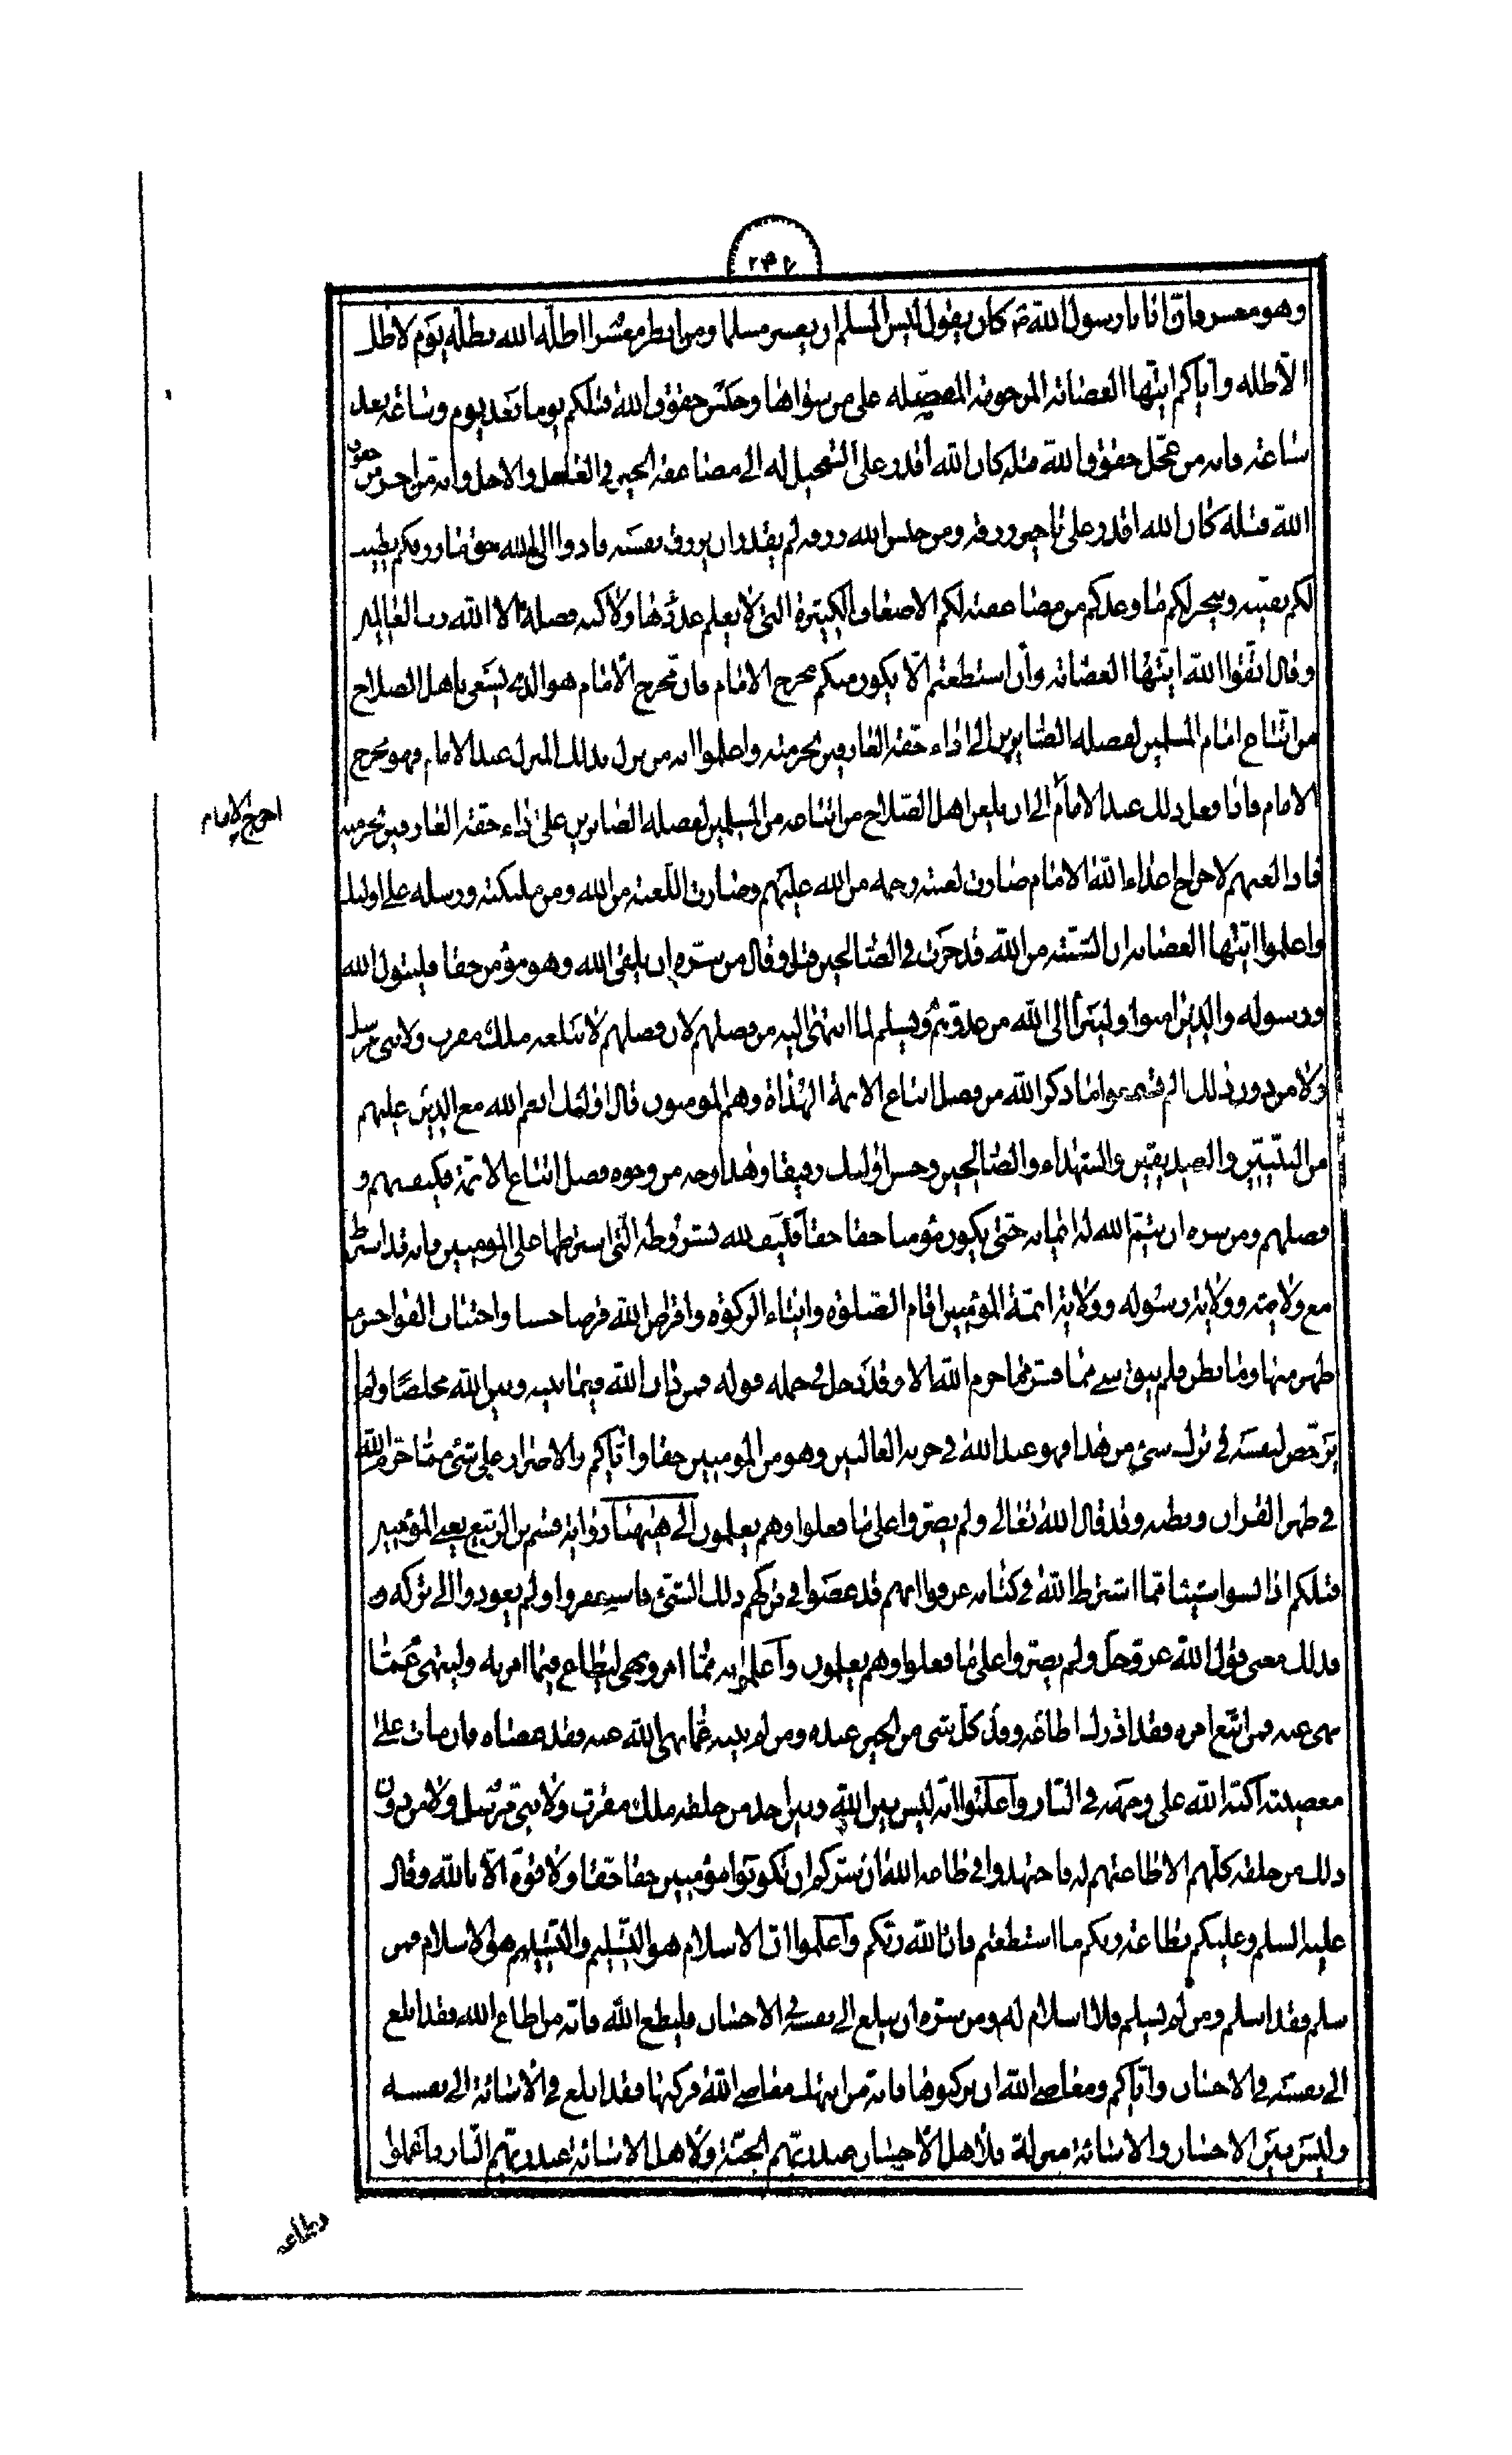 ٢٣٧
وهو معسر فان ابانا رسول الله ص كان يقول ليس لمسلم ان يعسر مسلما ومن انظر معسرا اظله الله بظله يوم لا ظل
الا ظله واياكم ايتها العصابة المرحومة المفضله على من سواها وحبس حقوق الله قبلكم يوما بعد يوم وساعة بعد
ساعة فانه من عجل حقوق الله قبله كان الله اقدر على التعجيل له الى مضاعفة الخير في العاجل والاجل وانه من اخر حقوق
الله قبله كان الله اقدر على تاخير رزقه ومن حبس الله رزقه لم يقدر ان يرزق نفسه فادوا الى الله حق ما رزقكم يطيب
لكم بقيته وينجز لكم ما وعدكم من مضاعفته لكم الاضعاف الكثيرة التى لا يعلم عددها ولا كنه فضلها الا الله رب العالمين
وقال اتقوا الله ايتها العصابة وان استطعتم الا يكون منكم محرج الامام فان محرج الامام هو الذى يسعى باهل الصلاح
من اتباع امام المسلمين لفضله الصابرين الى اداء حقه العارفين بحرمته واعلموا انه من نزل بذلك المنزل عند الامام فهو محرج
الامام فاذا فعل ذلك عند الامام الى ان يلعن اهل الصلاح من اتباعه من المسلمين لفضله الصابرين على اداء حقه العارفين بحرمته
فاذا لعنهم لاحراج اعداء الله الامام صارت لعنته رحمة من الله عليهم وصارت اللعنة من الله ومن ملئكته ورسله على اولئك
واعلموا ايتها العصابة ان السنة من الله قد جرت في الصالحين قبل وقال من سره ان يلقى الله وهو مؤمن حقا فليتول الله
ورسوله والذين امنوا وليتبرأ الى الله من عدوهم ويسلم لما انتهى اليه من فضلهم لان فضلهم لا يبلغه ملك مقرب ولا نبى مرسل
ولا من دون ذلك الم تسمعوا ما ذكر الله من فضل اتباع الائمة الهداة وهم المومنون قال اولئك انعم الله مع الذين عليهم
من النبيين والصديقين والشهداء والصالحين وحسن اولئك رفيقا وهذا وجه من وجوه فضل اتباع الائمة فكيف بهم و
فضلهم ومن سره ان يتم الله له ايمانه حتى يكون مؤمنا حقا حقا فليف لله بشروطه التى اشترطها على المومنين فانه قد اشترط
مع ولايته وولاية رسوله وولاية ائمة المؤمنين اقام الصلوة وايتاء الزكوة واقراض الله قرضا حسنا واجتناب الفواحش ما
ظهر منها وما بطن فلم يبق شئ مما فسر مما حرم الله الا وقد دخل في جملة قوله فمن دان الله فيما بينه وبين الله مخلصا ولم
يرخص لنفسه في ترك شئ من هذا فهو عند الله في حزبه الغالبين وهو من المومنين حقا واياكم والاصرار على شئ مما حرم الله
في ظهر القران وبطنه وقد قال الله تعالى ولم يصروا على ما فعلوا وهم يعلمون الى هيهنا رواية قسم بن الربيع يعنى المؤمنين
قبلكم اذا نسوا شيئا مما اشترط الله في كتابه عرفوا انهم قد عصوا في تركهم ذلك الشئ فاستغفروا ولم يعودوا الى تركه و
فذلك معنى قول الله عز وجل ولم يصروا على ما فعلوا وهم يعلمون واعلموا انه مما امر ونهى ليطاع فيما امر به ولينتهى عما
نهى عنه فمن اتبع امره فقد اطاعه وقد ادرك كل شئ من الخير عنده ومن لم ينته عما نهى الله عنه فقد عصاه فان مات على
معصيته اكبه الله على وجهه في النار واعلموا انه ليس بين الله وبين احد من خلقه ملك مقرب ولا نبى مرسل ولا من دون
ذلك من خلقه كلهم الا طاعتهم له فاجتهدوا في طاعة الله ان سركم ان تكونوا مؤمنين حقا حقا ولا قوة الا بالله وقال
عليه السلم وعليكم بطاعة ربكم ما استطعتم فان الله ربكم واعلموا ان الاسلام هو التسليم والتسليم هو الاسلام فمن
سلم فقد اسلم ومن لم يسلم فلا اسلام له ومن سره ان يبلغ الى نفسه في الاحسان فليطع الله فانه من اطاع الله فقد ابلغ
الى نفسه في الاحسان واياكم ومعاصى الله ان تركبوها فانه من انتهك معاصى الله فركبها فقد ابلغ في الاسائة الى نفسه
وليس بين الاحسان والاسائة منزلة فلاهل الاحسان عند ربهم الجنة ولاهل الاسائة عند ربهم النار فاعملوا
احرج الامام
بطاعة